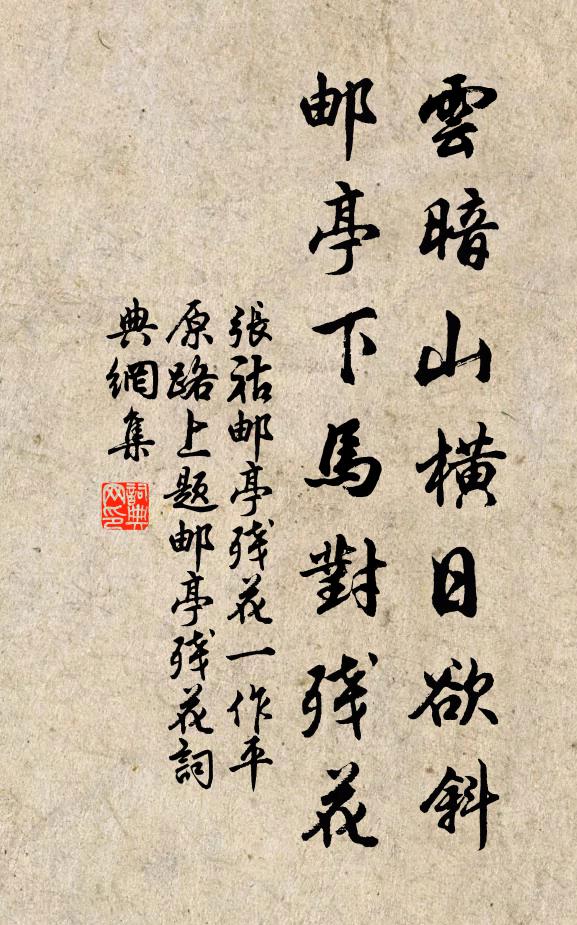 雲暗山橫日欲斜
邮亭下馬對殘花
張祜邮亭殘花一作平
原路上题邮亭殘花詞
典網集
詞典
网印